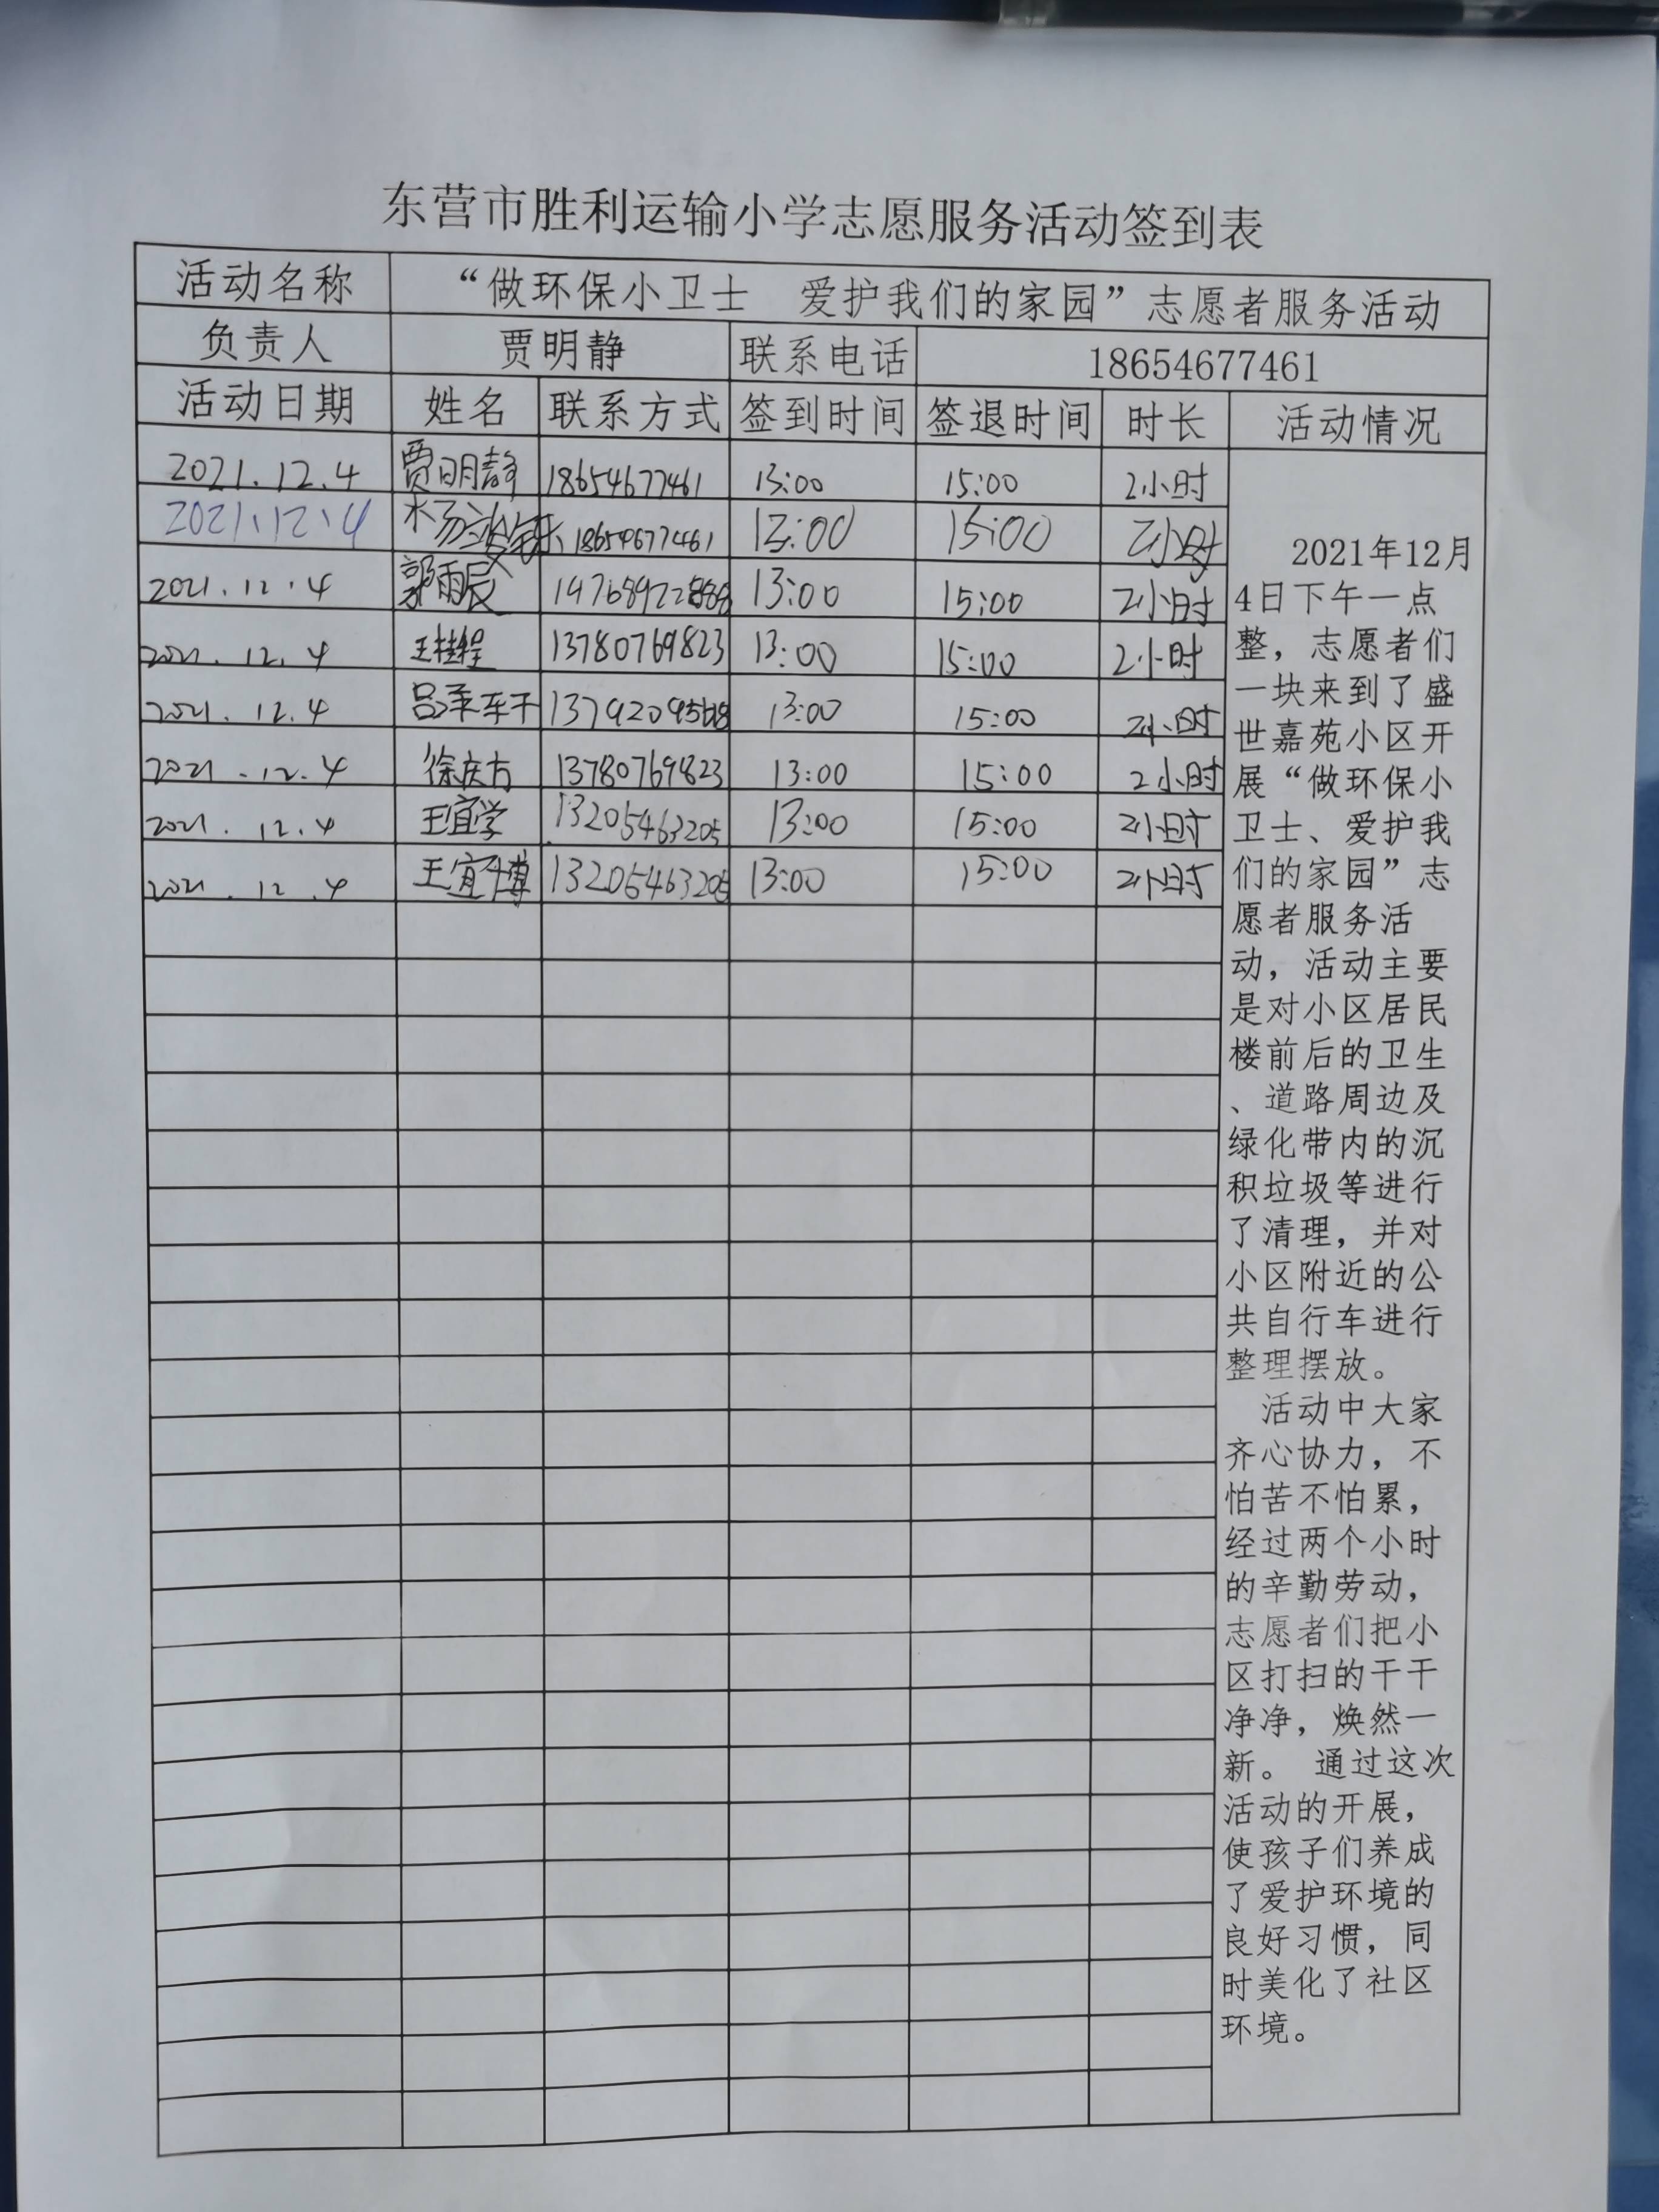 东营市胜利运输小学志愿服务活动签到表
活动名称 “做环保小卫士 爱护我们的家园”志愿者服务活动
负责人 贾明静 联系电话 18654677461
活动日期 姓名 联系方式 签到时间 签退时间 时长 活动情况
2021.12.4 贾明静 18654677461 13:00 15:00 2小时
2021.12.4 18654677461 15:00 2小时
2021.12.4 郭雨辰 13:00 15:00 2小时
2021.12.4 13780769823 13:00 15:00 2小时
2021.12.4 13:00 15:00 2小时
2021.12.4 徐庆方 13780769823 13:00 15:00 2小时
2021.12.4 王宜学 13205463205 13:00 15:00 2小时
2021.12.4 王宜博 13205463205 13:00 15:00 2小时
2021年12月
4日下午一点
整，志愿者们
一块来到了盛
世嘉苑小区开
展“做环保小
卫士、爱护我
们的家园”志
愿者服务活
动，活动主要
是对小区居民
楼前后的卫生
、道路周边及
绿化带内的沉
积垃圾等进行
了清理，并对
小区附近的公
共自行车进行
整理摆放。
活动中大家
齐心协力，不
怕苦不怕累，
经过两个小时
的辛勤劳动，
志愿者们把小
区打扫的干干
净净，焕然一
新。 通过这次
活动的开展，
使孩子们养成
了爱护环境的
良好习惯，同
时美化了社区
环境。